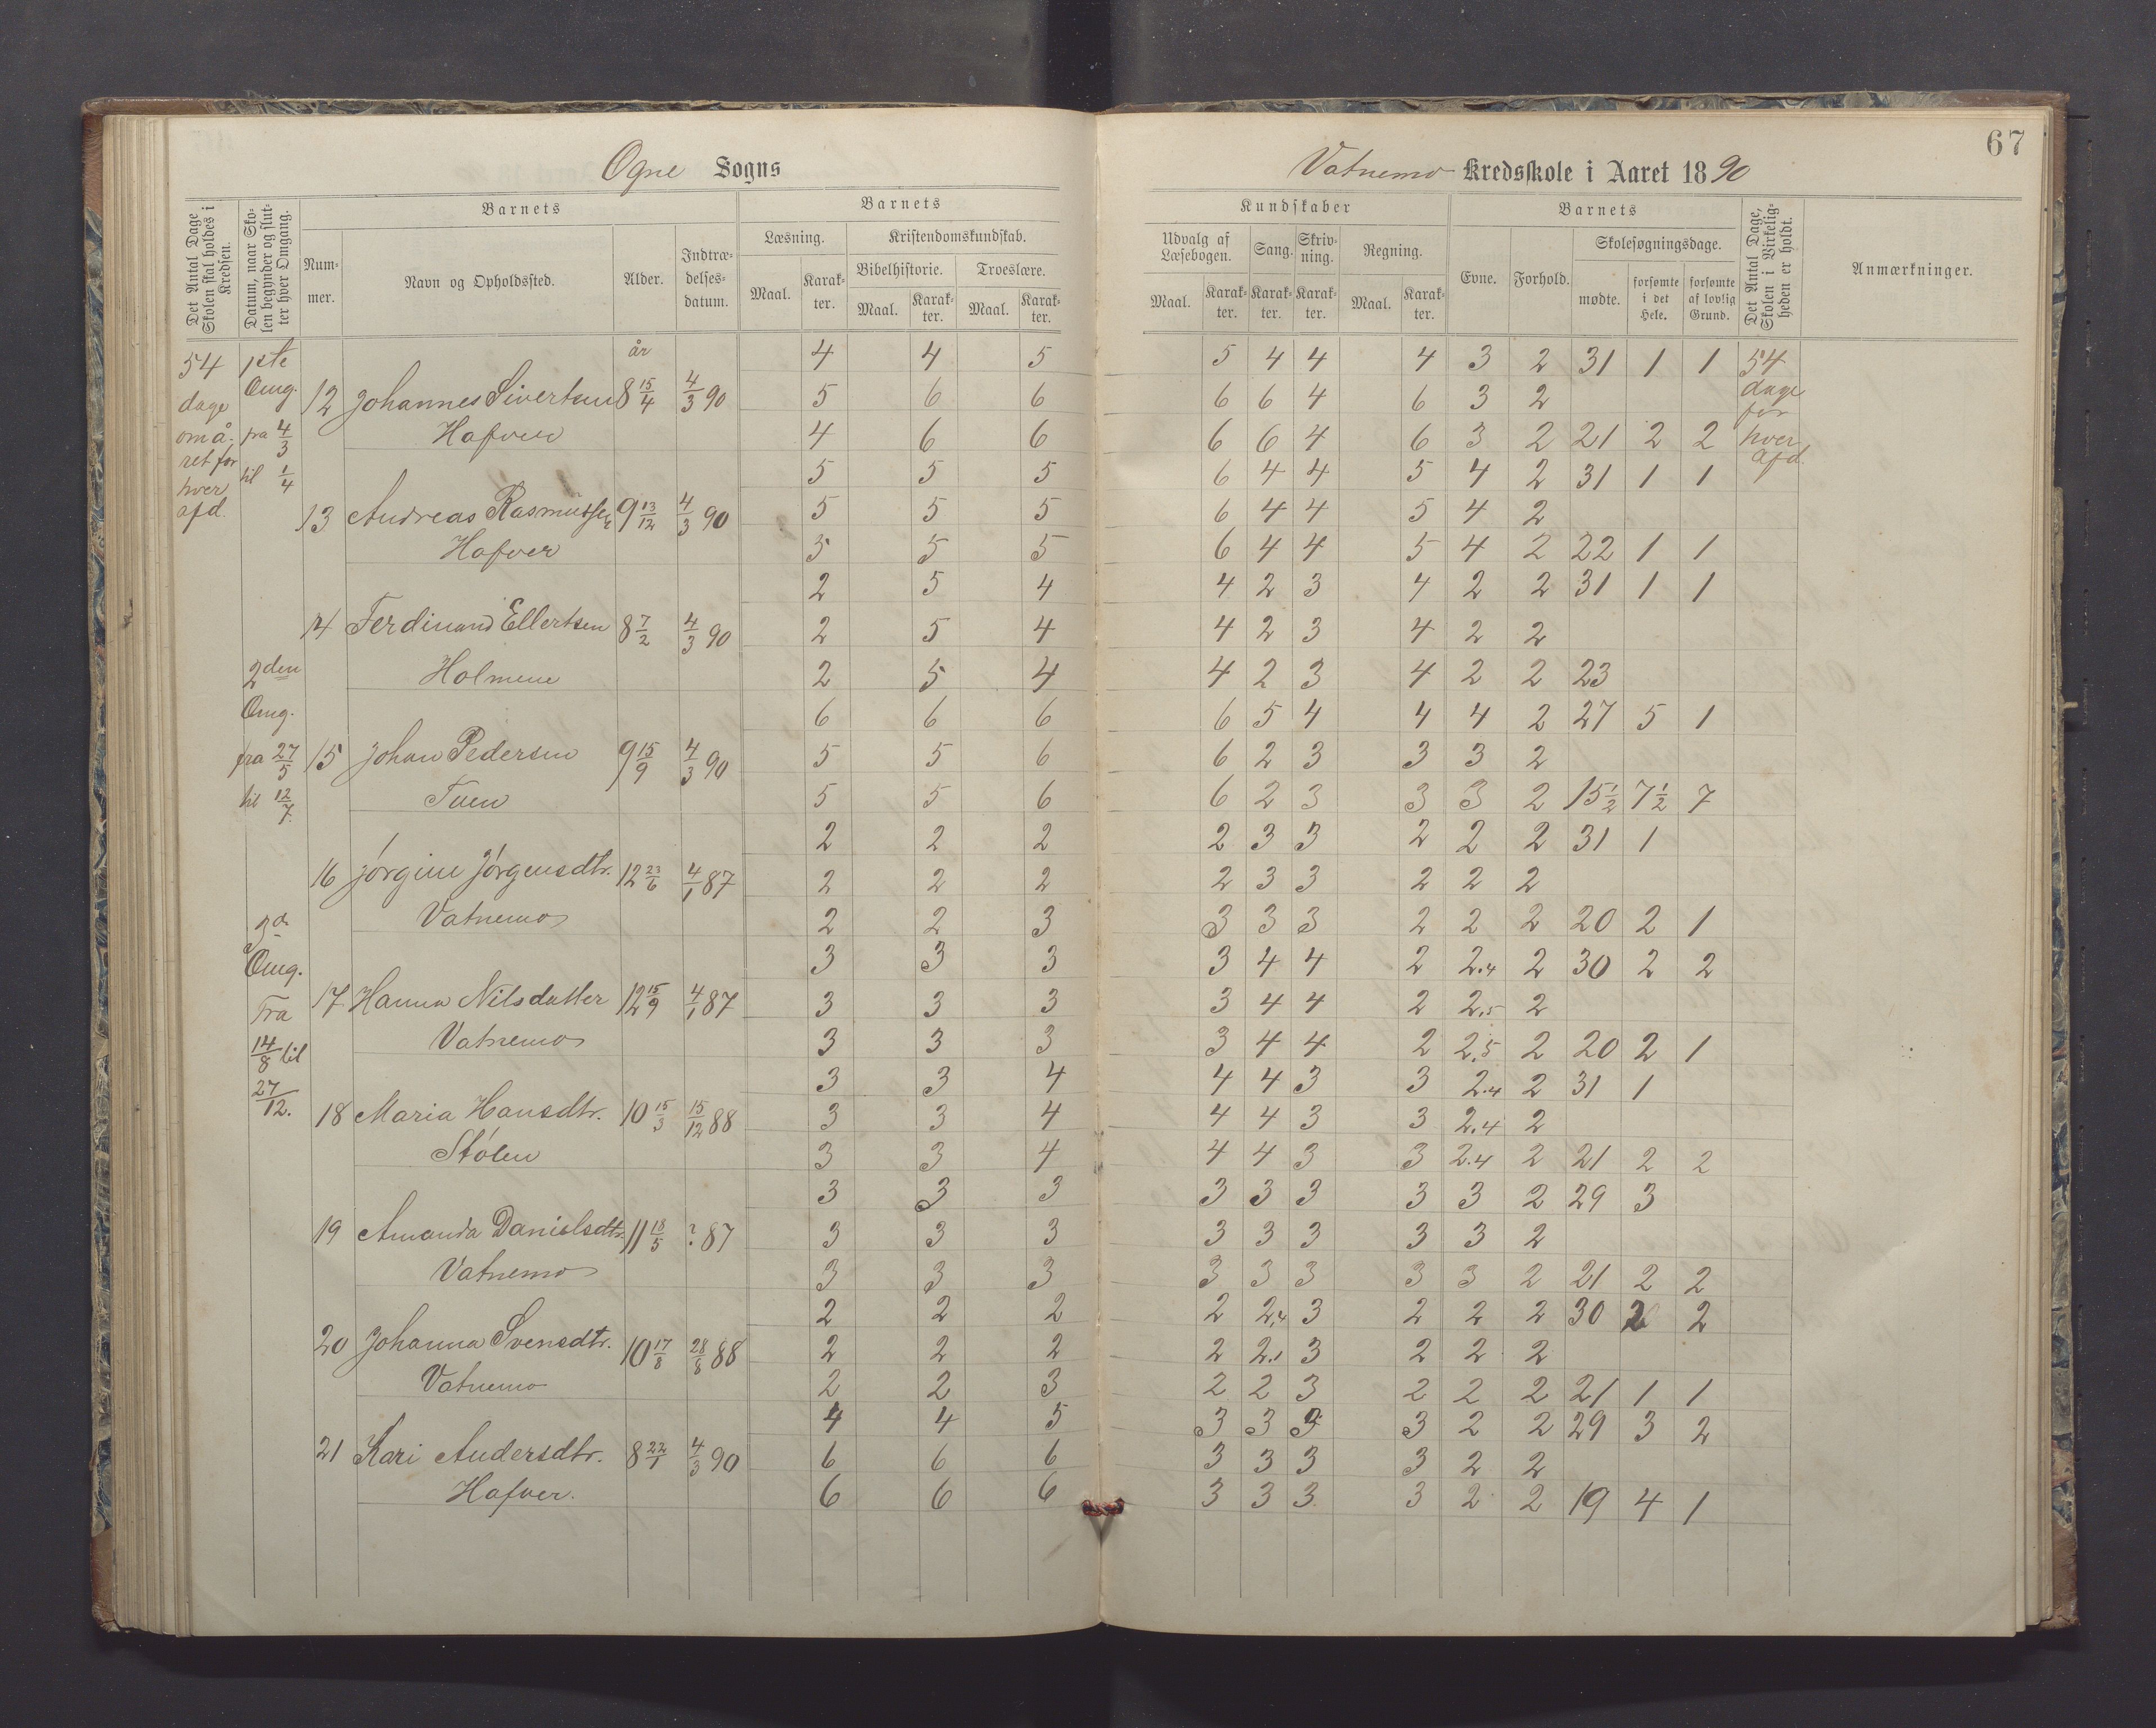 67
Ogne Sogns
Vatnemo Kredsskole i Aaret 1890
Det Antal Dage Skolen skal holdes i Kredsen.
Datum, naar Skolen begynder og slutter hver Omgang.
Barnets
Nummer.
Navn og Opholdssted.
Alder.
Indtrædelses-datum.
Barnets
Læsning.
Maal.
Karakter.
Kristendomskundskab.
Bibelhistorie.
Maal.
Karakter.
Troeslære.
Maal.
Karakter.
Kundskaber
Udvalg af Læsebogen.
Maal.
Karakter.
Sang.
Karakter.
Skrivning.
Karakter.
Regning.
Maal.
Karakter.
Barnets
Evne.
Forhold.
Skolesøgningsdage.
mødte.
forsømte i det Hele.
forsømte af lovlig Grund.
Det Antal Dage, Skolen i Virkeligheden er holdt.
Anmærkninger.
54 dage om året for hver afd.
1ste Omg. fra 4/3 til 1/4
2den Omg. fra 27/5 til 12/7.
3d Omg. Fra 14/8 til 27/12.
54 dage for hver afd.
år
4 4 5 5 4 4 4 3 2 31 1 1
12 Johannes Sivertsen 8 15/4 4/3 90 5 6 6 6 6 4 6 3 2
Hafver 4 6 6 6 6 4 6 3 2 21 2 2
5 5 5 6 4 4 5 4 2 31 1 1
13 Andreas Rasmussen 9 13/12 4/3 90 5 5 5 6 4 4 5 4 2
Hafver 5 5 5 6 4 4 5 4 2 22 1 1
2 5 4 4 2 3 4 2 2 31 1 1
14 Ferdinand Ellertsen 8 7/2 4/3 90 2 5 4 4 2 3 4 2 2
Holmene 2 5 4 4 2 3 4 2 2 23
6 6 6 6 5 4 4 4 2 27 5 1
15 Johan Pedersen 9 15/9 4/3 90 5 5 6 6 2 3 3 3 2
Tuen 5 5 6 6 2 3 3 3 2 15 1/2 7 1/2 7
2 2 2 2 3 3 2 2 2 31 1
16 Jørgine Jørgensdtr. 12 23/6 4/1 87 2 2 2 2 3 3 2 2 2
Vatnemo 2 2 3 3 3 3 2 2 2 20 2 1
3 3 3 3 4 4 2 2.4 2 30 2 2
17 Hanna Nilsdatter 12 15/9 4/1 87 3 3 3 3 4 4 2 2.5 2
Vatnemo 3 3 3 3 4 4 2 2.5 2 20 2 1
3 3 4 4 4 3 3 2.4 2 31 1
18 Maria Hansdtr. 10 15/3 15/12 88 3 3 4 4 4 3 3 2.4 2
Stølen 3 3 4 4 4 3 3 2.4 2 21 2 2
3 3 3 3 3 3 3 3 2 29 3
19 Amanda Danielsdtr. 11 18/5 ? 87 3 3 3 3 3 3 3 3 2
Vatnemo 3 3 3 3 3 3 3 3 2 21 2 2
2 2 2 2 2,4 3 2 2 2 30 2 2
20 Johanna Svensdtr. 10 17/8 28/6 88 2 2 2 2 2.1 3 2 2 2
Vatnemo 2 2 3 2 2 3 2 2 2 21 1 1
4 4 5 3 3 3 3 2 2 29 3 2
21 Kari Andersdtr. 8 22/1 4/3 90 6 6 6 3 3 3 3 2 2
Hafver. 6 6 6 3 3 3 3 2 2 19 4 1